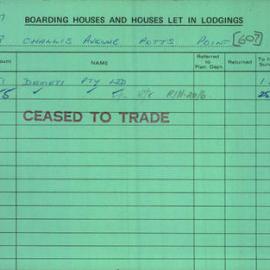 BOARDING HOUSES AND HOUSES LET IN LODGINGS
CHALLIS AVENUE POTTS POINT [607]
NAME
Referred to Plan. Dept.
Returned
DEMETI PTY LTD
R/H-20/6
CEASED TO TRADE